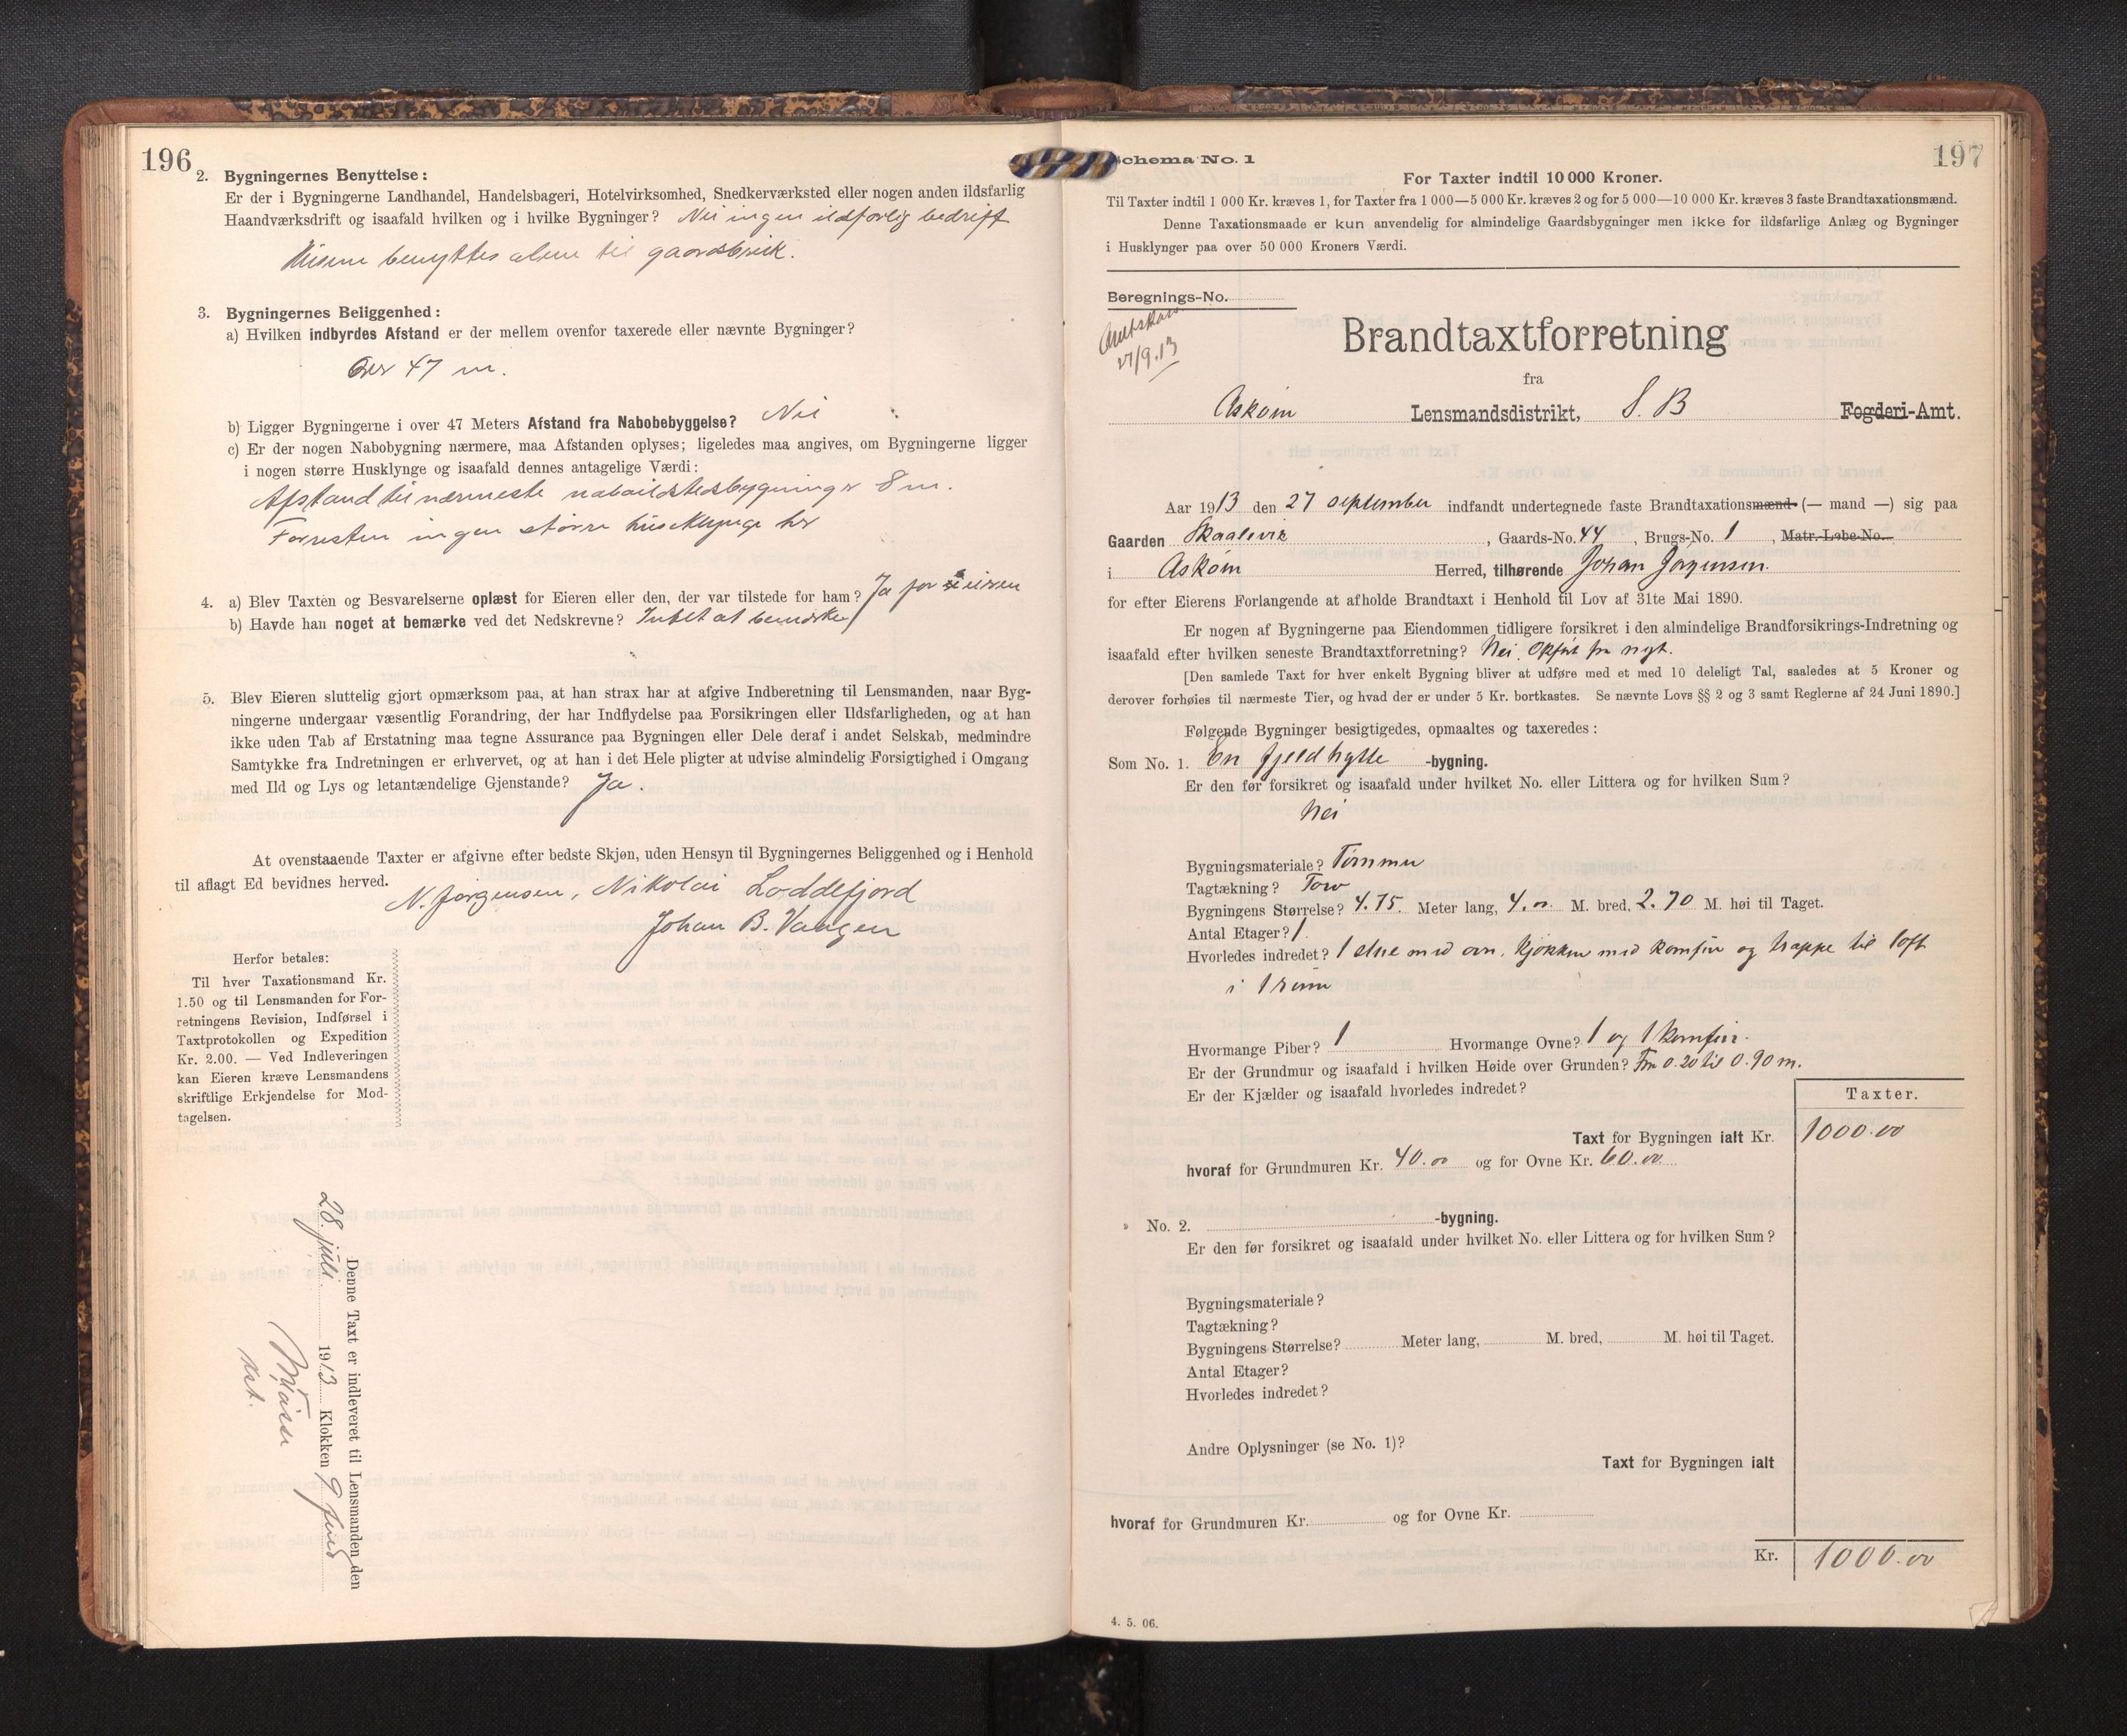 196
2. Bygningernes Benyttelse:
Er der i Bygningerne Landhandel, Handelsbageri, Hotelvirksomhed, Snedkerværksted eller nogen anden ildsfarlig
Haandværksdrift og isaafald hvilken og i hvilke Bygninger? Nei ingen ildsfarlig bedrift
Husene benyttes alene til gaardsbruk.
3. Bygningernes Beliggenhed:
a) Hvilken indbyrdes Afstand er der mellem ovenfor taxerede eller nævnte Bygninger?
Over 47 m.
b) Ligger Bygningerne i over 47 Meters Afstand fra Nabobebyggelse? Nei
c) Er der nogen Nabobygning nærmere, maa Afstanden oplyses; ligeledes maa angives, om Bygningerne ligger
i nogen større Husklynge og isaafald dennes antagelige Værdi:
Afstand til nærmeste naboildstedsbygning er 8 m.
Forresten ingen større husklynge her
4. a) Blev Taxten og Besvarelserne oplæst for Eieren eller den, der var tilstede for ham? Ja for eieren
b) Havde han noget at bemærke ved det Nedskrevne? Intet at bemærke
5. Blev Eieren sluttelig gjort opmærksom paa, at han strax har at afgive Indberetning til Lensmanden, naar Byg-
ningerne undergaar væsentlig Forandring, der har Indflydelse paa Forsikringen eller Ildsfarligheden, og at han
ikke uden Tab af Erstatning maa tegne Assurance paa Bygningen eller Dele deraf i andet Selskab, medmindre
Samtykke fra Indretningen er erhvervet, og at han i det Hele pligter at udvise almindelig Forsigtighed i Omgang
med Ild og Lys og letantændelige Gjenstande? Ja.
At ovenstaaende Taxter er afgivne efter bedste Skjøn, uden Hensyn til Bygningernes Beliggenhed og i Henhold
til aflagt Ed bevidnes herved.
N. Jørgensen, Nikolai Loddefjord
Johan B. Vangen
Herfor betales:
Til hver Taxationsmand Kr.
1.50 og til Lensmanden for For-
retningens Revision, Indførsel i
Taxtprotokollen og Expedition
Kr. 2.00. — Ved Indleveringen
kan Eieren kræve Lensmandens
skriftlige Erkjendelse for Mod-
tagelsen.
Denne Taxt er indleveret til Lensmanden den
28. juli 1913 Klokken 9 fmd
197
Schema No. 1
For Taxter indtil 10 000 Kroner.
Til Taxter indtil 1 000 Kr. kræves 1, for Taxter fra 1 000—5 000 Kr. kræves 2 og for 5 000—10 000 Kr. kræves 3 faste Brandtaxationsmænd.
Denne Taxationsmaade er kun anvendelig for almindelige Gaardsbygninger men ikke for ildsfarlige Anlæg og Bygninger
i Husklynger paa over 50 000 Kroners Værdi.
Beregnings-No.
27/9.13
Brandtaxtforretning
fra
Askøin Lensmandsdistrikt, S. B Fogderi-Amt.
Aar 1913 den 27 september indfandt undertegnede faste Brandtaxationsmænd (— mand —) sig paa
Gaarden Skaalevik, Gaards-No. 44, Brugs-No. 1, Matr.-Løbe-No.
i Askøin Herred, tilhørende Johan Jørgensen.
for efter Eierens Forlangende at afholde Brandtaxt i Henhold til Lov af 31te Mai 1890.
Er nogen af Bygningerne paa Eiendommen tidligere forsikret i den almindelige Brandforsikrings-Indretning og
isaafald efter hvilken seneste Brandtaxtforretning? Nei. Opført fra nyt.
[Den samlede Taxt for hver enkelt Bygning bliver at udføre med et med 10 deleligt Tal, saaledes at 5 Kroner og
derover forhøies til nærmeste Tier, og hvad der er under 5 Kr. bortkastes. Se nævnte Lovs §§ 2 og 3 samt Reglerne af 24 Juni 1890.]
Følgende Bygninger besigtigedes, opmaaltes og taxeredes:
Som No. 1. En fjeldhytte -bygning.
Er den før forsikret og isaafald under hvilket No. eller Littera og for hvilken Sum?
Nei
Bygningsmateriale? Tømmer
Tagtækning? Torv
Bygningens Størrelse? 4.75. Meter lang, 4.00 M. bred, 2.70 M. høi til Taget.
Antal Etager? 1.
Hvorledes indredet? 1 stue med ovn. Kjøkken med komfur og trappe til loft
i 1 rum
Hvormange Piber? 1 Hvormange Ovne? 1 og 1 komfur.
Er der Grundmur og isaafald i hvilken Høide over Grunden? Fra 0.20 til 0.90 m.
Er der Kjælder og isaafald hvorledes indredet?
Taxter.
Taxt for Bygningen ialt Kr. 1000.00
hvoraf for Grundmuren Kr. 40.00 og for Ovne Kr. 60.00
" No. 2. -bygning.
Er den før forsikret og isaafald under hvilket No. eller Littera og for hvilken Sum?
Bygningsmateriale?
Tagtækning?
Bygningens Størrelse? Meter lang, M. bred, M. høi til Taget.
Antal Etager?
Hvorledes indredet?
Andre Oplysninger (se No. 1)?
Taxt for Bygningen ialt
hvoraf for Grundmuren Kr. og for Ovne Kr.
Kr. 1000.00
4. 5. 06.